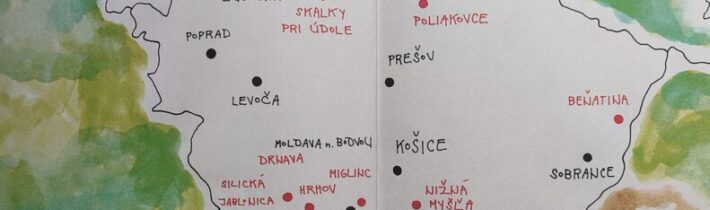 SKALKY
PRI ÚDOLE
POLIAKOVCE
POPRAD
PREŠOV
LEVOČA
BEŇATINA
MOLDAVA n. BODVOU
KOŠICE
DRNAVA
MIGLINC
SOBRANCE
SILICKÁ
JABLONICA
HRHOV
NIŽNÁ
MYŠĽA